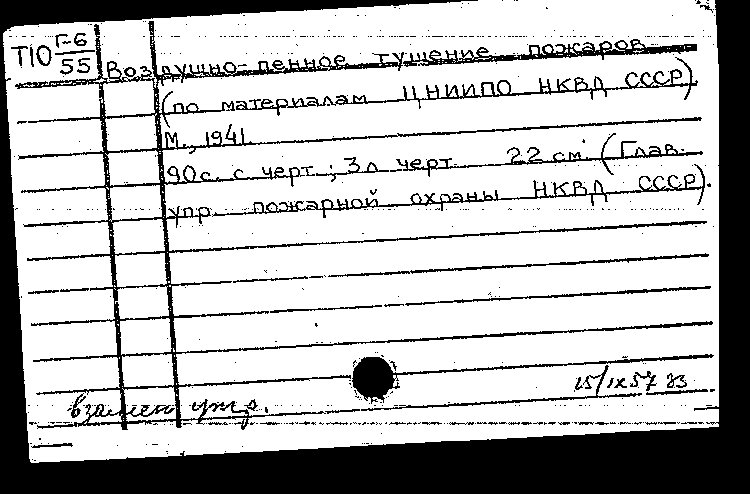 Т10 Г-6
55
Воздушно-пенное тушение пожаров
(по материалам ЦНИИПО НКВД СССР)
М., 1941.
90с. с черт.; 3л черт. 22 см. (Глав.
упр. пожарной охраны НКВД СССР).
15/IX 57
взамен утр.